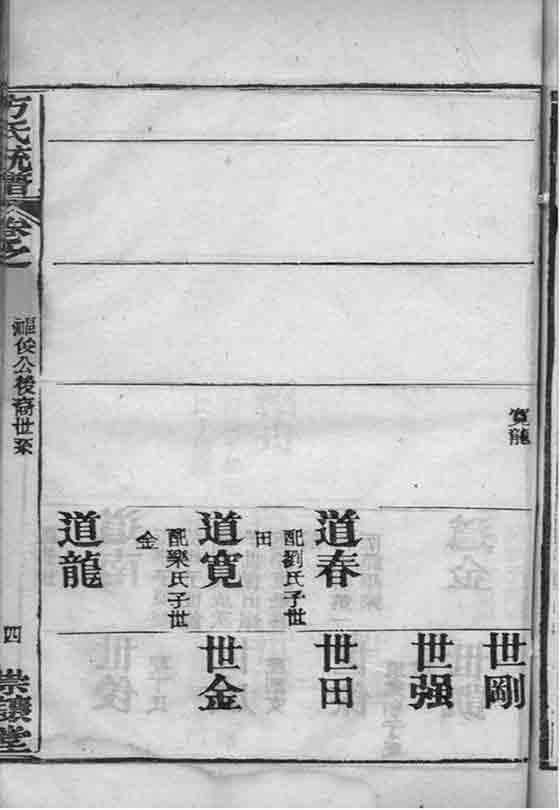 寬龍
世剛
世强
道春
配劉氏子世
田
世田
道寬
配樂氏子世
金
世金
道龍
方氏統譜
卷之
俊公後裔世系
四
崇讓堂